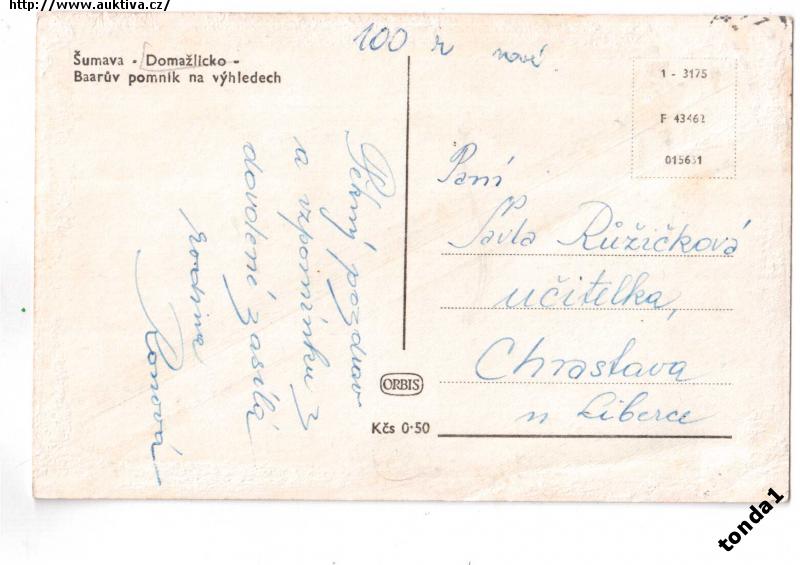 http://www.auktiva.cz/
100 r nové
Šumava - Domažlicko -
Baarův pomník na výhledech
1 - 3175
F 43462
015631
Pěkný pozdrav
a vzpomínku z
dovolené zasílá
rodina
Paní
Pavla Růžičková
učitelka,
Chrastava
u Liberce
ORBIS
Kčs 0·50
tonda1